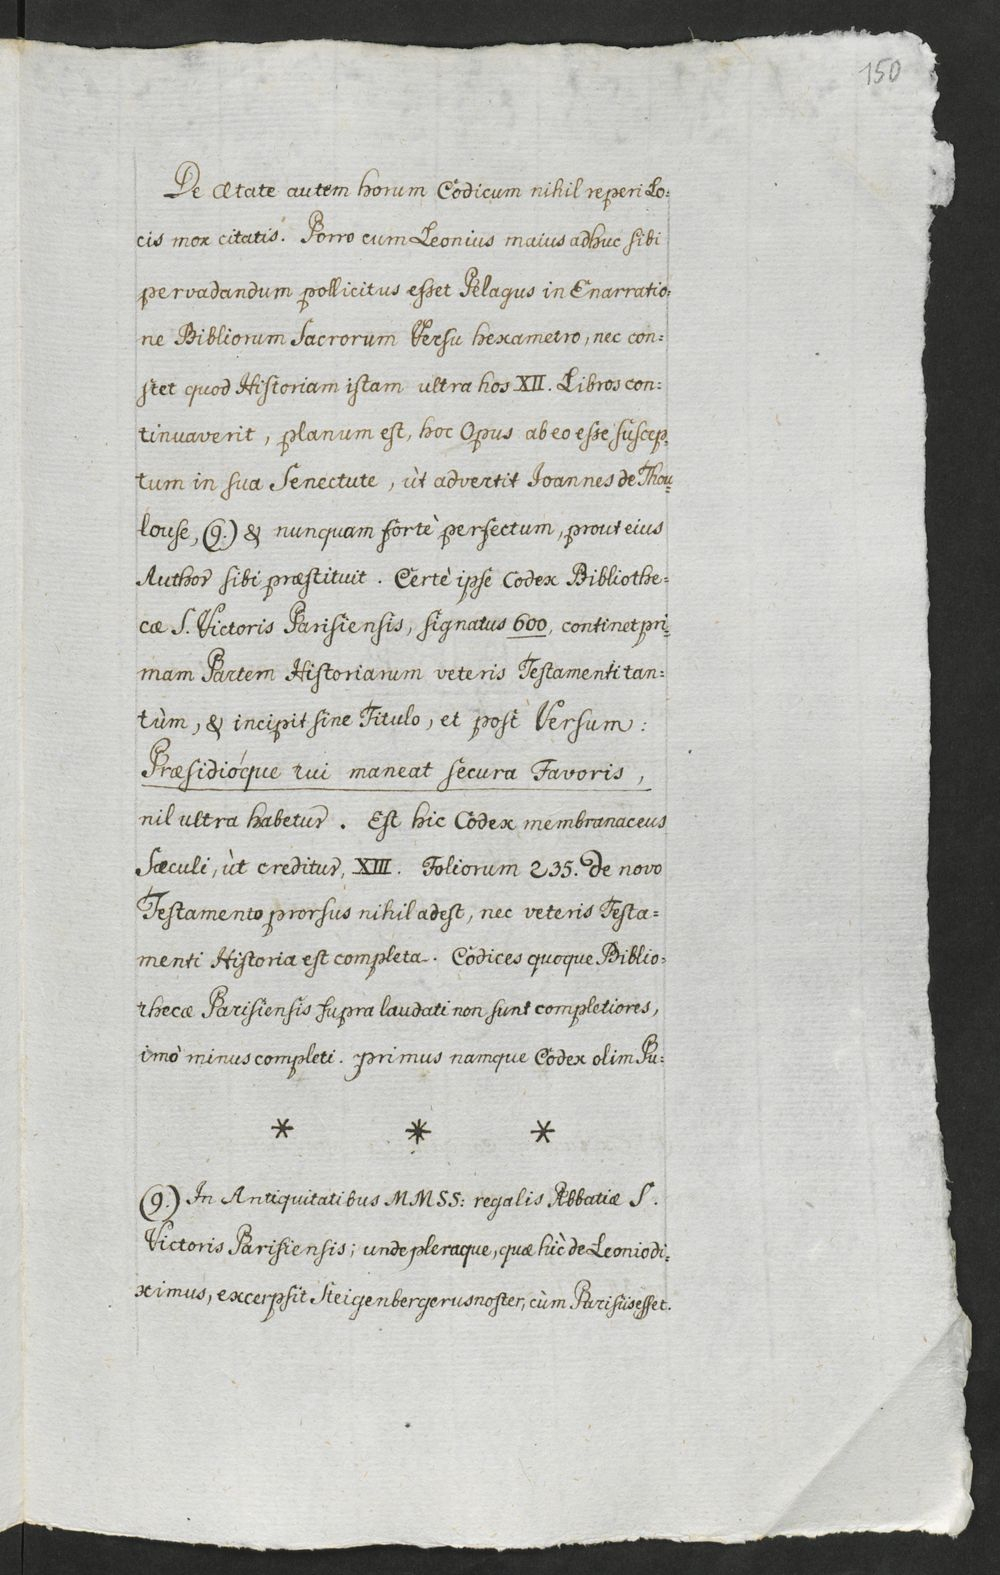 150
De ætate autem horum Codicum nihil reperi Lo=
cis mox citatis. Porro cum Leonius maius adhuc sibi
pervadandum pollicitus esset Pelagus in Enarratio=
ne Bibliorum Sacrorum Versu hexametro, nec con=
stet quod Historiam istam ultra hos XII. Libros con=
tinuaverit, planum est, hoc Opus ab eo esse suscep=
tum in sua Senectute, ùt advertit Joannes de Thou=
louse, (9.) & nunquam fortè perfectum, prout eius
Author sibi præstituit. Certè ipse Codex Bibliothe=
cæ S. Victoris Parisiensis, signatus 600, continet pri=
mam Partem Historiarum veteris Testamenti tan=
tùm, & incipit sine Titulo, et post Versum:
Præsidióque tui maneat secura Favoris,
nil ultra habetur. Est hic Codex membranaceus
Sæculi, ùt creditur, XIII. Foliorum 235. De novo
Testamento prorsus nihil adest, nec veteris Testa=
menti Historia est completa. Codices quoque Biblio=
thecæ Parisiensis supra laudati non sunt completiores,
imò minus completi. primus namque Codex olim Pu=
* * *
(9.) In Antiquitatibus MMSS: regalis Abbatiæ S.
Victoris Parisiensis; unde pleraque, quæ hìc de Leonio di=
ximus, excerpsit Steigenbergerus noster, cùm Parisiis esset.